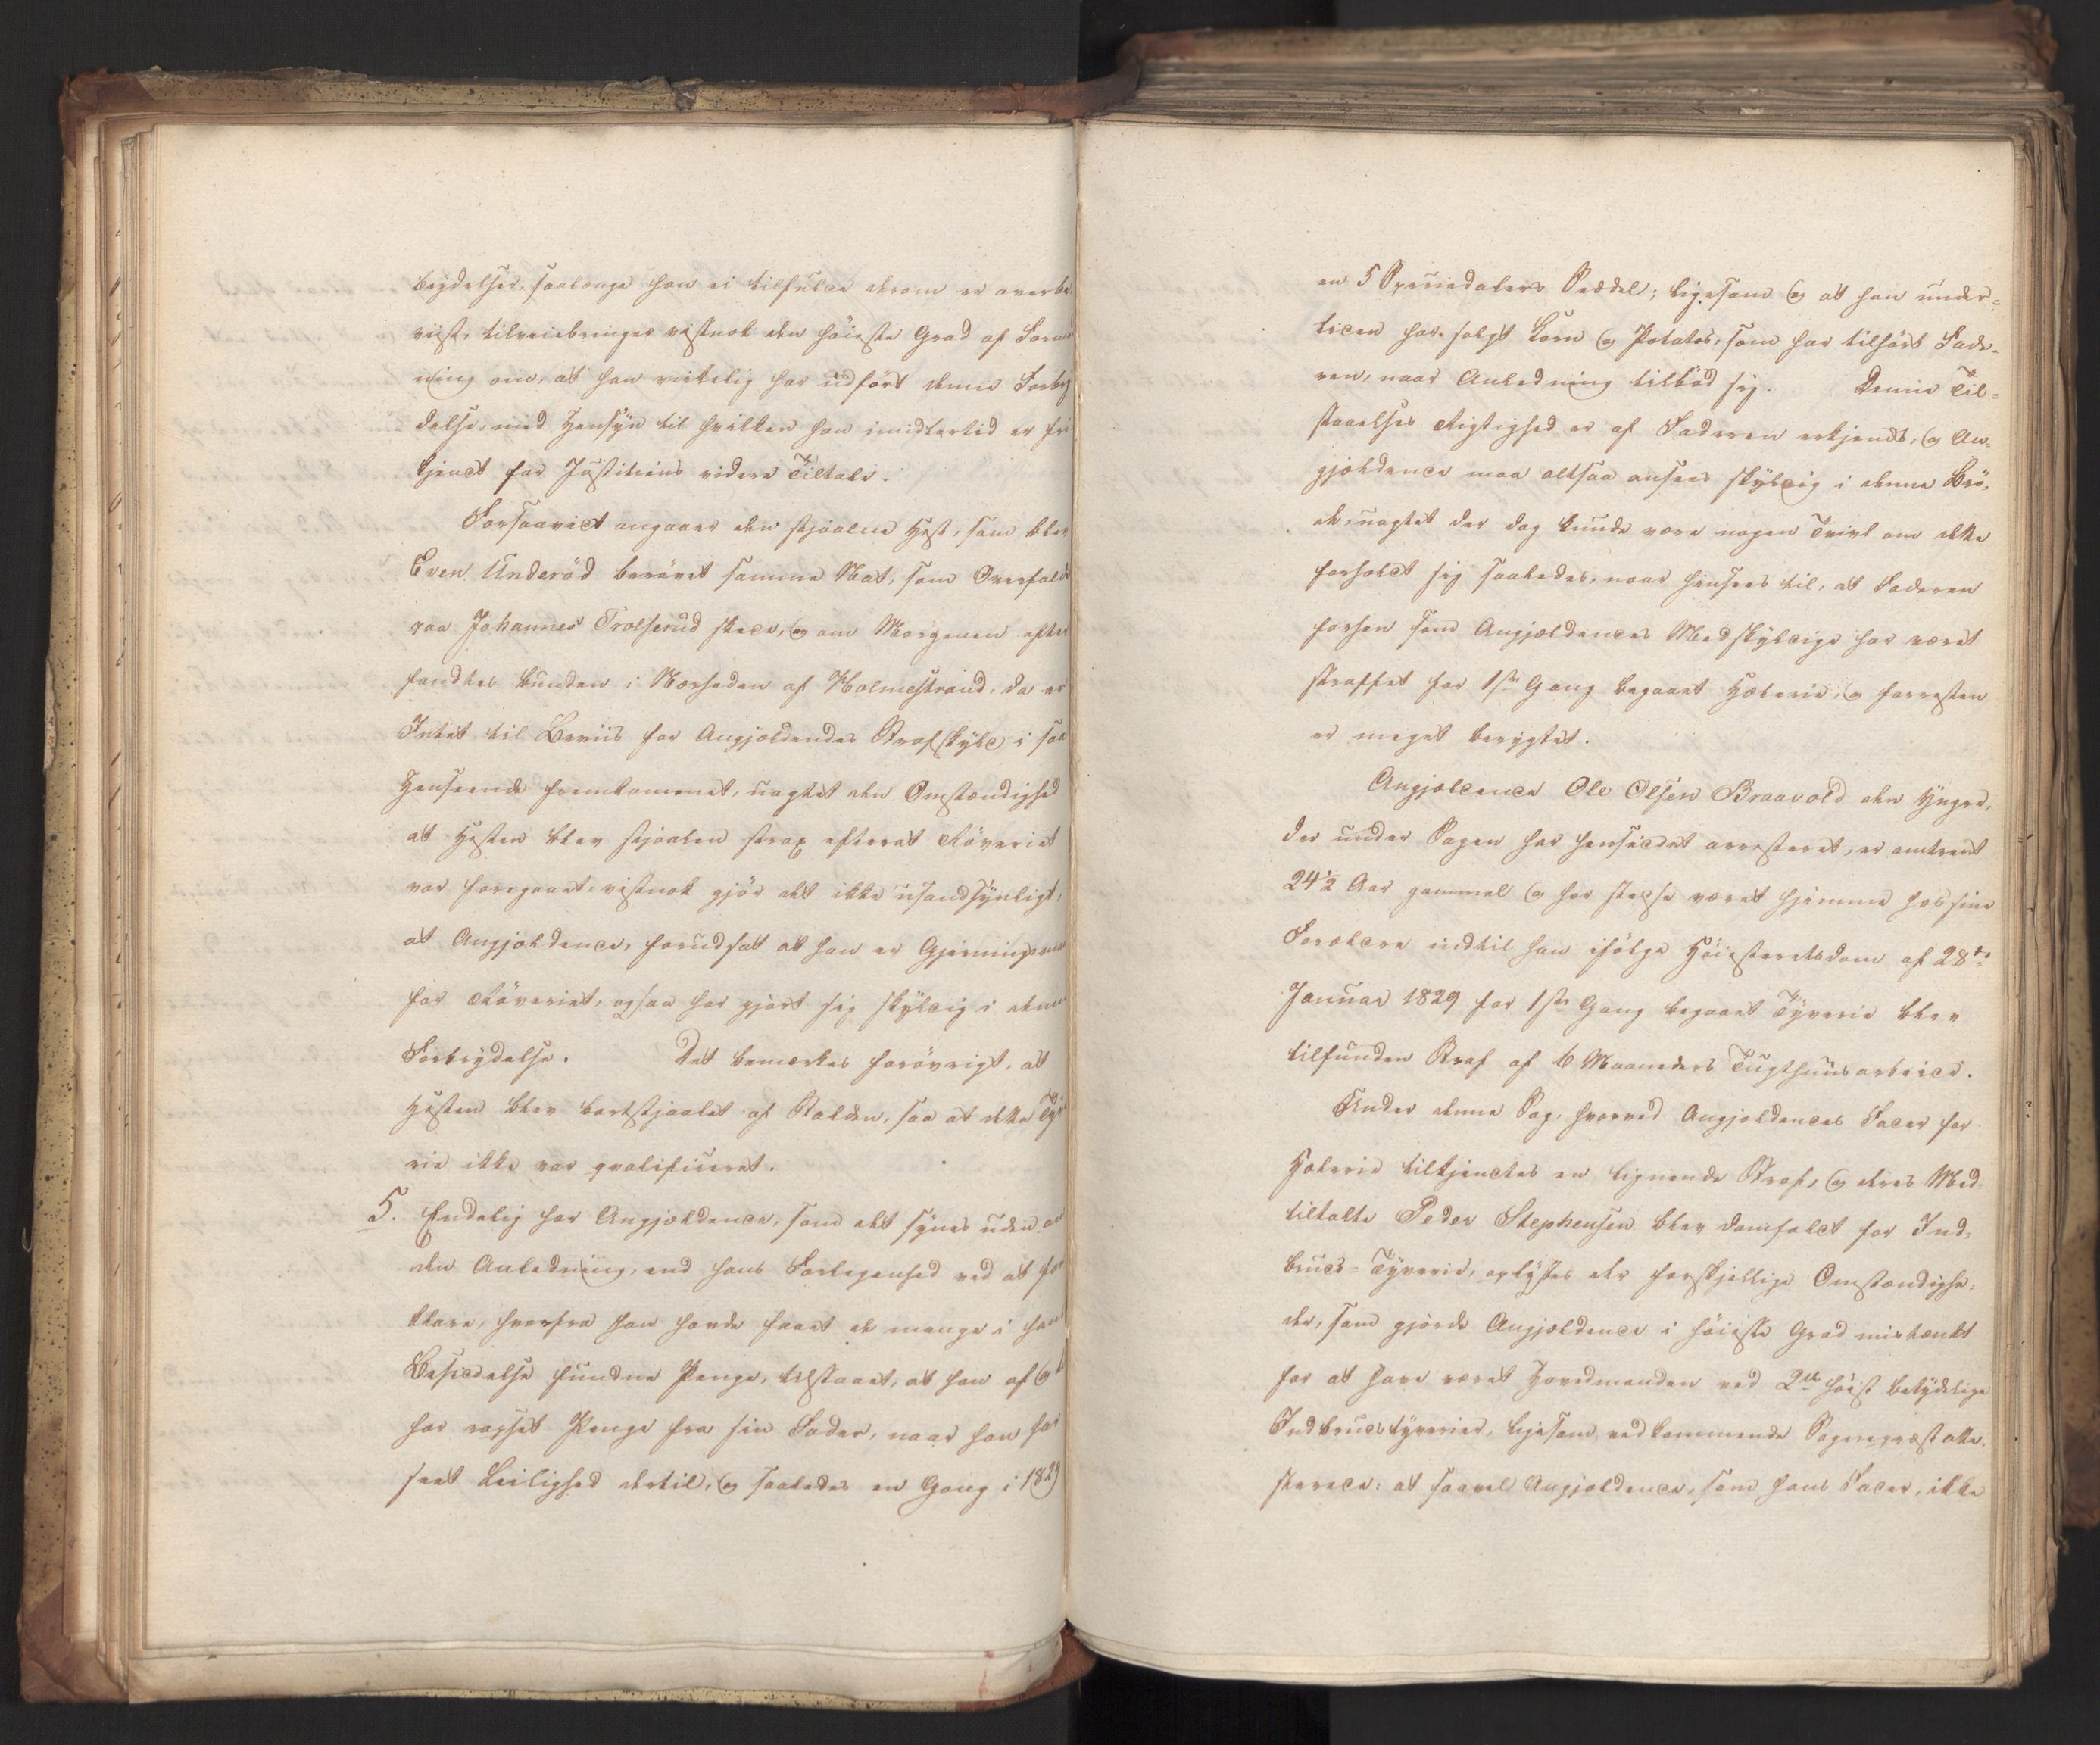 brydelser, saalænge han ei tilfulde derom er overbe-
viist, tilveiebringes vistnok den höieste Grad af Form
ning om, at han virkelig har udfört denne Forbry
delse, med Hensyn til hvilken han imidlertid er fri
kjendt for Justitiens videre Tiltale.
Forsaavidt angaaer den stjaalne Hest, som blev
Even Underöd berövet samme Nat, som Overfaldet
paa Johannes Trolserud skede, og om Morgenen efter
fandtes bunden i Nærheden af Holmestrand, da er
Intet til Beviis for Angjældendes Strafskyld i saa
Henseende fremkommet, uagtet den Omstændighed
at Hesten blev stjaalen strax efterat Röveriet
var foregaaet, vistnok gjör det ikke usandsynligt,
at Angjældende, forudsat at han er Gjerningsma
for Röveriet, ogsaa har gjort sig skyldig i denne
Forbrydelse. Det bemærkes forövrigt, at
Hesten blev bortstjaalet af Stalden, saa at dette Ty
rie ikke var qvalificeret.
5. Endelig har Angjældende, som det synes uden an
den Anledning, end hans Forlegenhed ved at for
klare, hvorfra han havde faaet de mange i hans
Besiddelse fundne Penge, tilstaaet, at han af og t
har rapset Penge fra sin Fader, naar han har
seet Leilighed dertil, og saaledes en Gang i 1829
en 5 Speciedalers Seddel; ligesom og at han under-
tiden har solgt Korn og Potatos, som har tilhört Fade-
ren, naar Anledning tilböd sig. Denne Til-
staaelses Rigtighed er af Faderen erkjendt, og An-
gjældende maa altsaa ansees skyldig i denne Brö-
de, uagtet der dog kunde være nogen Tvivl om dette
forholdt sig saaledes, naar hensees til, at Faderen
forhen som Angjældendes Medskyldige har været
straffet for 1ste Gang begaaet Hæleri, og forresten
er meget berygtet.
Angjældende Ole Olsen Braavold den Yngre,
der under Sagen har hensiddet arresteret, er omtrent
24½ Aar gammel og har stedse været hjemme hos sine
Forældre indtil han ifölge Höiesteretsdom af 28de
Januar 1829 for 1ste Gang begaaet Tyverie blev
tilfunden Straf af 6 Maaneders Tugthuusarbeide.
Under denne Sag, hvorved Angjældendes Fader for
Hælerie tilkjendtes en lignende Straf, og deres Med-
tiltalte Peder Stephensen blev domfældt for Ind-
bruds-Tyverie, oplystes der forskjellige Omstændighe-
der, som gjorde Angjældende i höieste Grad mistænkt
for at have været Hovedmanden ved 2de höist betydelige
Indbrudstyverier, ligesom vedkommende Sognepræst atte-
sterede: at saavel Angjældende, som hans Fader, ikke